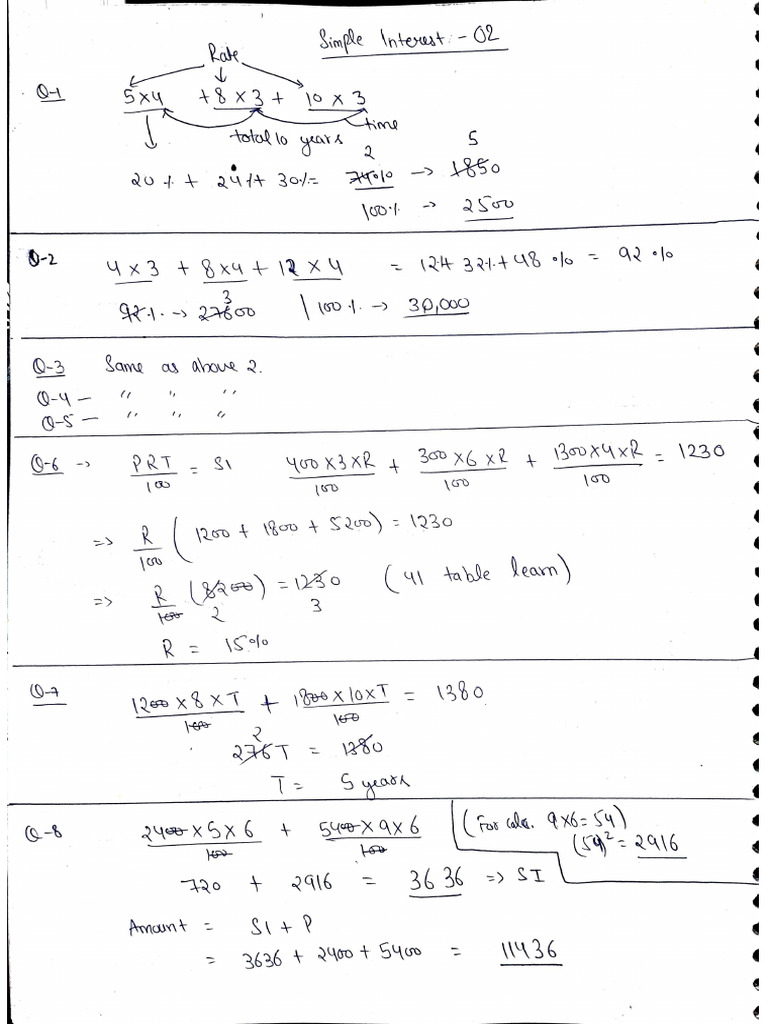 Simple Interest :- 02
Rate
Q-1 5x4 + 8 x 3 + 10 x 3
total 10 years time
2 5
20% + 24% + 30% = 74% -> 1850
100% -> 2500
Q-2 4 x 3 + 8x4 + 12 x 4 = 12+ 32%+48 % = 92 %
3
92% -> 27600 | 100 % -> 30,000
Q-3 Same as above 2.
Q-4 - " " "
Q-5 - " " "
Q-6 -> PRT/100 = SI 400 x3xR/100 + 300 x6 xR/100 + 1300x4xR/100 = 1230
=> R/100 ( 1200 + 1800 + 5200) = 1230
=> R/100 (8200) = 1230 ( 41 table learn)
2 3
R = 15%
Q-7 1200 x 8 x T/100 + 1800 x 10 x T/100 = 1380
2
276T = 1380
T = 5 years
Q-8 2400 x 5 x 6/100 + 5400 x 9 x 6/100 (For calc. 9x6=54)
(54)² = 2916
720 + 2916 = 3636 => SI
Amount = SI + P
= 3636 + 2400 + 5400 = 11436